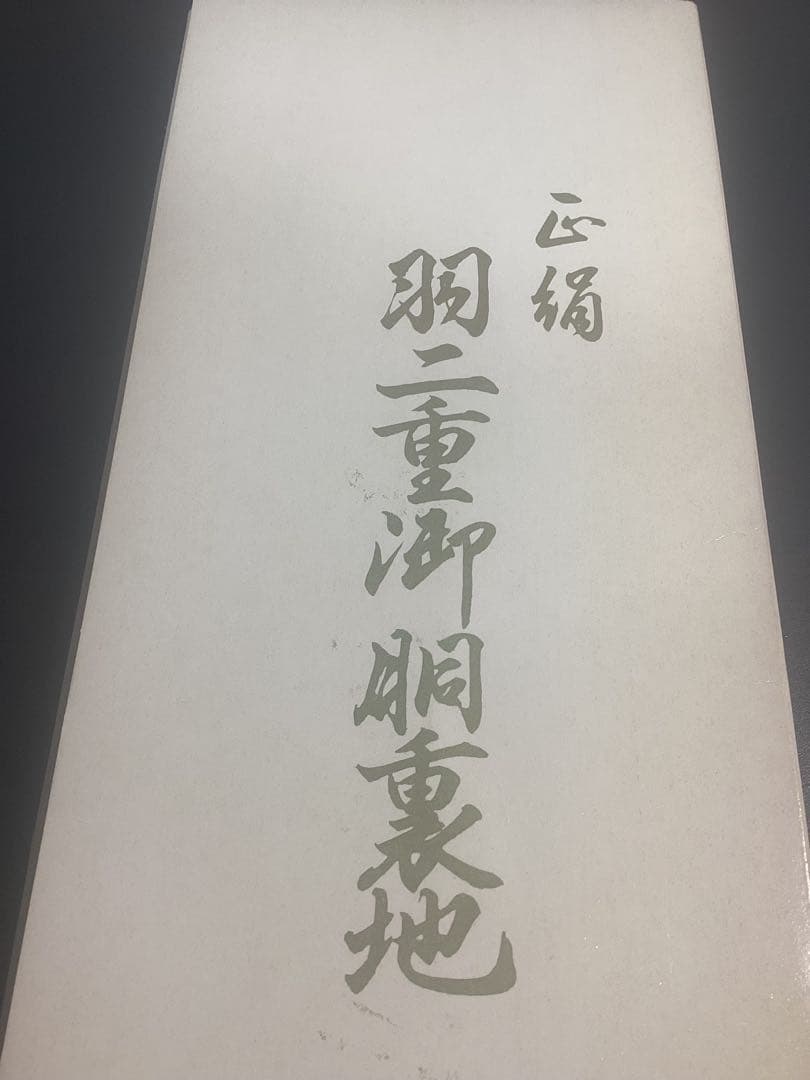 正絹
羽二重御胴裏地